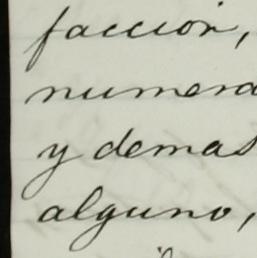 facción,
numera
y demas
alguno,